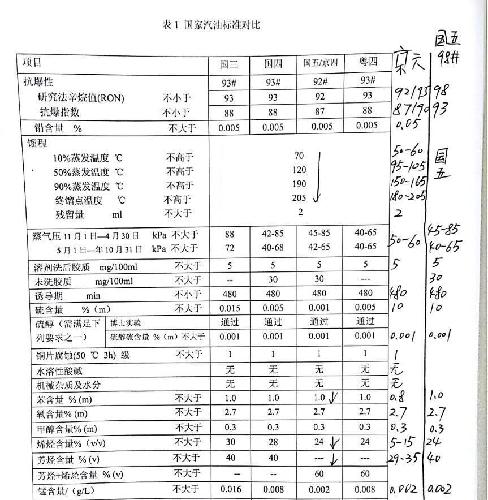 表1 国家汽油标准对比
项目 国三 国四 国五/京四 粤四 京六 国五 98#
抗爆性 93# 93# 92# 93#
研究法辛烷值(RON) 不小于 93 93 92 93 92/95 98
抗爆指数 不小于 88 88 87 88 87/90 93
铅含量 % 不大于 0.005 0.005 0.005 0.005 0.05
馏程
10%蒸发温度 ℃ 不高于 70 50-60 国五
50%蒸发温度 ℃ 不高于 120 95-105
90%蒸发温度 ℃ 不高于 190 150-165
终馏点温度 ℃ 不高于 205 ↓ 180-205
残留量 ml 不大于 2 2
蒸气压 11月1日—4月30日 kPa 不大于 88 42-85 45-85 40-65 50-60 45-85
5月1日—年10月31日 kPa 不大于 72 40-68 42-65 40-65 40-65
溶剂洗后胶质 mg/100ml 不大于 5 5 5 5 5 5
未洗胶质 mg/100ml 不大于 -- 30 30 --- 30
诱导期 min 不小于 480 480 480 480 480 480
硫含量 %(m) 不大于 0.015 0.005 0.001 0.005 10 10
硫醇(需满足下列要求之一) 博士实验 通过 通过 通过 通过
硫醇硫含量 %(m)不大于 0.001 0.001 0.001 0.001 0.001 0.001
铜片腐蚀(50 ℃ 3h) 级 不大于 1 1 1 1 1
水溶性酸碱 无 无 无 无 无
机械杂质及水分 无 无 无 无 无
苯含量 %(m) 不大于 1.0 1.0 1.0 ↓ 1.0 0.8 1.0
氧含量%(m) 不大于 2.7 2.7 2.7 2.7 2.7 2.7
甲醇含量%(m) 不大于 0.3 0.3 0.3 0.3 0.3 0.3
烯烃含量%(v/v) 不大于 30 28 24 ↓ 24 5-15 24
芳烃含量 %(v) 不大于 40 40 --- ↓ -- 29-35 40
芳烃+烯烃含量 %(v) 不大于 -- -- 60 60
锰含量/(g/L) 不大于 0.016 0.008 0.002 0.008 0.002 0.002